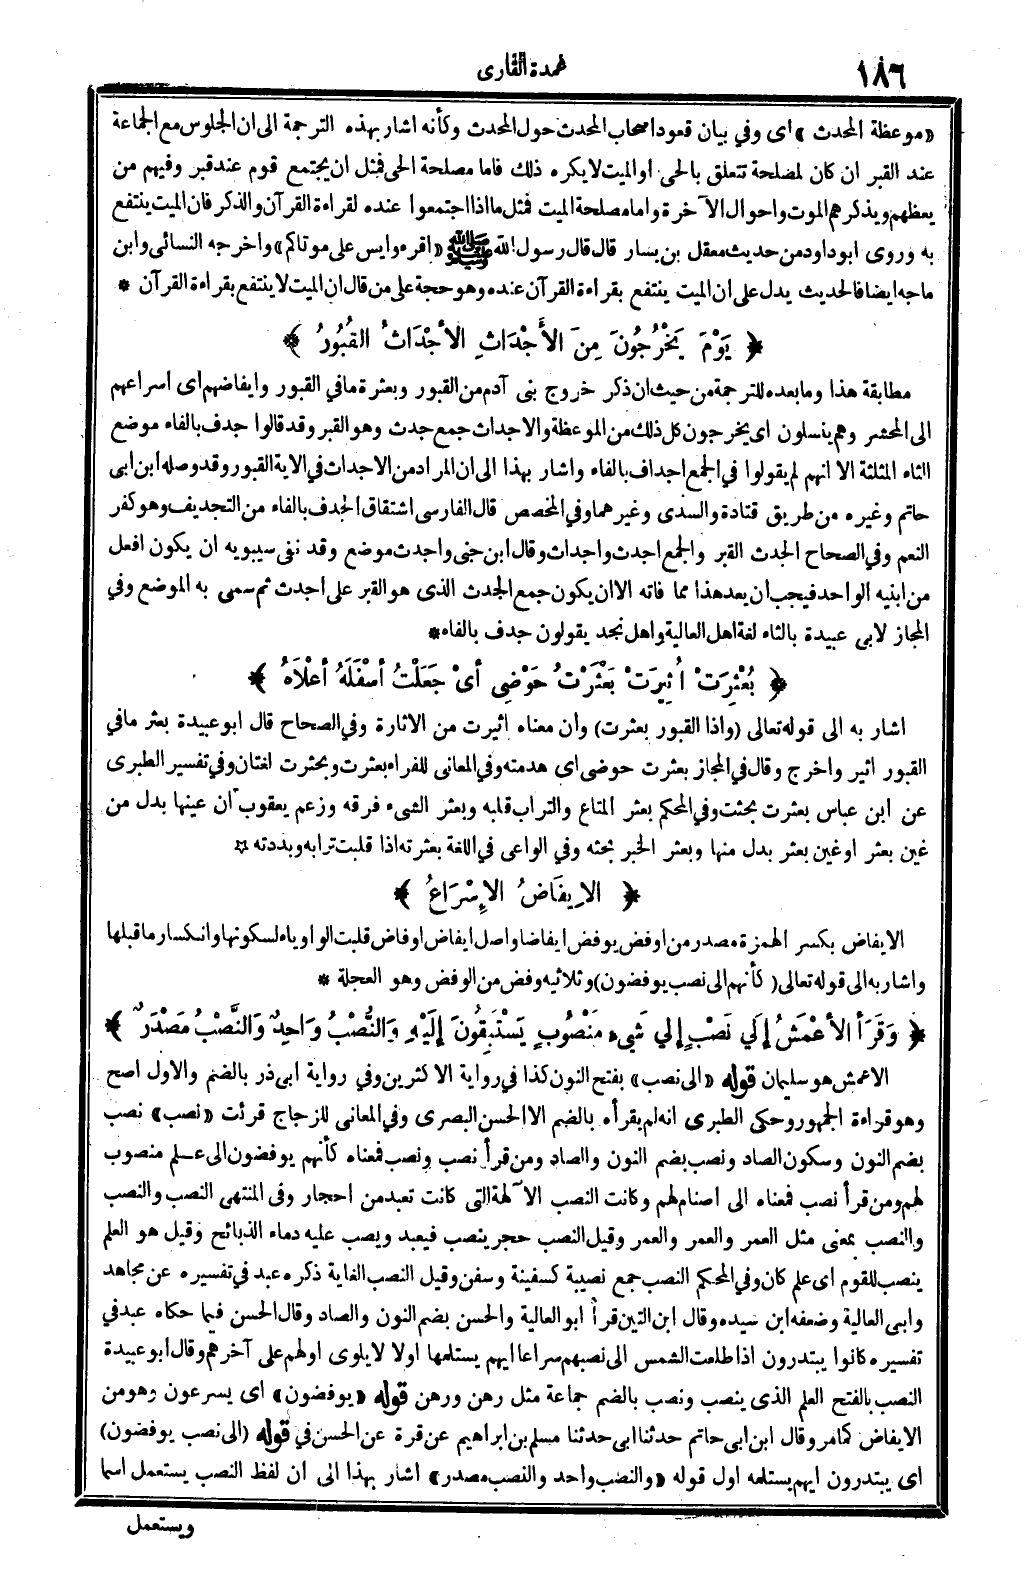 عمدة القارى
١٨٦
«موعظة المحدث» اى وفي بيان قعود اصحاب المحدث حول المحدث وكأنه اشار بهذه الترجمة الى ان الجلوس مع الجماعة
عند القبر ان كان لمصلحة تتعلق بالحى او الميت لا يكره ذلك فاما مصلحة الحى فمثل ان يجتمع قوم عند قبر وفيهم من
يعظهم ويذكرهم الموت واحوال الآخرة واما مصلحة الميت فمثل ما اذا اجتمعوا عنده لقراءة القرآن والذكر فان الميت ينتفع
به وروى ابو داود من حديث معقل بن يسار قال قال رسول الله ﷺ «اقرءوا يس على موتاكم» واخرجه النسائى وابن
ماجه ايضا فالحديث يدل على ان الميت ينتفع بقراءة القرآن عنده وهو حجة على من قال ان الميت لا ينتفع بقراءة القرآن *
﴿ يَوْمَ يَخْرُجُونَ مِنَ الأَجْدَاثِ الأَجْدَاثُ القُبُورُ ﴾
مطابقة هذا وما بعده للترجمة من حيث ان ذكر خروج بنى آدم من القبور وبعثرة ما في القبور وايفاضهم اى اسراعهم
الى المحشر وهم ينسلون اى يخرجون كل ذلك من الموعظة والاجداث جمع جدث وهو القبر وقد قالوا جدف بالفاء موضع
الثاء المثلثة الا انهم لم يقولوا في الجمع اجداف بالفاء واشار بهذا الى ان المراد من الاجداث في الاية القبور وقد وصله ابن ابى
حاتم وغيره من طريق قتادة والسدى وغيرهما وفي المخصص قال الفارسى اشتقاق الجدف بالفاء من التجديف وهو كفر
النعم وفي الصحاح الجدث القبر والجمع اجدث واجداث وقال ابن جنى واجدث موضع وقد نفى سيبويه ان يكون افعل
من ابنيه الواحد فيجب ان يعد هذا مما فاته الا ان يكون جمع الجدث الذى هو القبر على اجدث ثم سمى به الموضع وفي
المجاز لابى عبيدة بالثاء لغة اهل العالية واهل نجد يقولون جدف بالفاء*
﴿ بُعْثِرَتْ أُثِيرَتْ بَعْثَرْتُ حَوْضِى أىْ جَعَلْتُ أسْفَلَهُ أعْلاَهُ ﴾
اشار به الى قوله تعالى (واذا القبور بعثرت) وان معناه اثيرت من الاثارة وفي الصحاح قال ابو عبيدة بعثر ما في
القبور اثير واخرج وقال في المجاز بعثرت حوضى اى هدمته وفي المعانى للفراء بعثرت وبحثرت لغتان وفي تفسير الطبرى
عن ابن عباس بعثرت بحثت وفي المحكم بعثر المتاع والتراب قلبه وبعثر الشىء فرقه وزعم يعقوب ان عينها بدل من
غين بعثر او غين بعثر بدل منها وبعثر الخبر بحثه وفي الواعى في اللغة بعثرته اذا قلبت ترابه وبددته *
﴿ الاِيفَاضُ الإِسْرَاعُ ﴾
الايفاض بكسر الهمزة مصدر من اوفض يوفض ايفاضا واصل ايفاض اوفاض قلبت الواو ياء لسكونها وانكسار ما قبلها
واشار به الى قوله تعالى (كأنهم الى نصب يوفضون) وثلاثيه وفض من الوفض وهو العجلة *
﴿ وَقَرَأ الأعْمَشُ إلَي نَصْبٍ إلي شَىْءٍ مَنْصُوبٍ يَسْتَبِقُونَ إلَيْهِ وَالنُّصْبُ وَاحِدٌ وَالنَّصْبُ مَصْدَرٌ ﴾
الاعمش هو سليمان قوله «الى نصب» بفتح النون كذا في رواية الاكثرين وفي رواية ابى ذر بالضم والاول اصح
وهو قراءة الجمهور وحكى الطبرى انه لم يقرأه بالضم الا الحسن البصرى وفي المعانى للزجاج قرئت «نصب» نصب
بضم النون وسكون الصاد ونصب بضم النون والصاد ومن قرأ نصب ونصب فمعناه كأنهم يوفضون الى علم منصوب
لهم ومن قرأ نصب فمعناه الى اصنام لهم وكانت النصب الآلهة التى كانت تعبد من احجار وفى المنتهى النصب والنصب
والنصب بمعنى مثل العمر والعمر والعمر وقيل النصب حجر ينصب فيعبد ويصب عليه دماء الذبائح وقيل هو العلم
ينصب للقوم اى علم كان وفي المحكم النصب جمع نصيبة كسفينة وسفن وقيل النصب الغاية ذكره عبد في تفسيره عن مجاهد
وابى العالية وضعفه ابن سيده وقال ابن التين قرأ ابو العالية والحسن بضم النون والصاد وقال الحسن فيما حكاه عبد في
تفسيره كانوا يبتدرون اذا طلعت الشمس الى نصبهم سراعا ايهم يستلمها اولا لا يلوى اولهم على آخرهم وقال ابو عبيدة
النصب بالفتح العلم الذى ينصب ونصب بالضم جماعة مثل رهن ورهن قوله «يوفضون» اى يسرعون وهو من
الايفاض كما مر وقال ابن ابى حاتم حدثنا ابى حدثنا مسلم بن ابراهيم عن قرة عن الحسن في قوله (الى نصب يوفضون)
اى يبتدرون ايهم يستلمه اول قوله «والنصب واحد والنصب مصدر» اشار بهذا الى ان لفظ النصب يستعمل اسما
ويستعمل